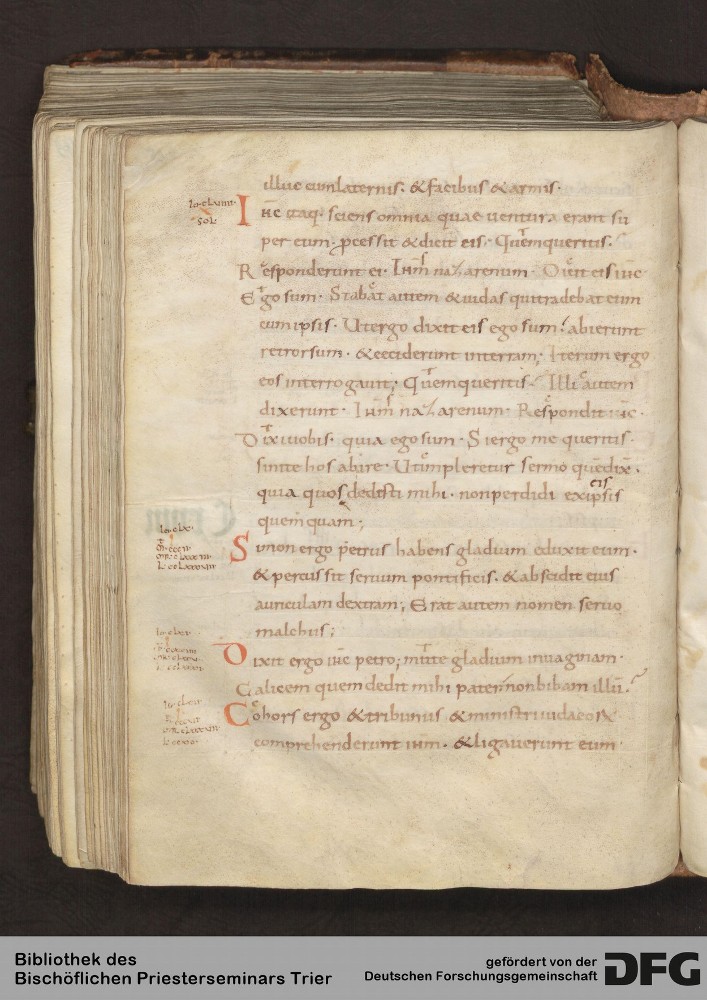 illuc cum laternis. & facibus & armis.
Ihc itaq. sciens omnia quae ventura erant su
per eum. pcessit & dicit eis. Quem queritis.
Responderunt ei. Ihm nazarenum. Dixit eis ihc
Ego sum. Stabat autem & iudas qui tradebat eum
cum ipsis. Ut ergo dixit eis ego sum. abierunt
retrorsum. & ceciderunt in terram; Iterum ergo
eos interrogavit; Quem queritis. Illi autem
dixerunt. Ihm nazarenum. Respondit ihc.
Dixi vobis. quia ego sum. Si ergo me queritis.
sinite hos abire. Ut impleretur sermo quem dix.
quia quos dedisti mihi. non perdidi ex ipsis
quemquam;
Simon ergo petrus habens gladium eduxit eum.
& percussit servum pontificis. & abscidit eius
auriculam dextram; Erat autem nomen servo
malchus;
Dixit ergo ihc petro; mitte gladium in vaginam.
Calicem quem dedit mihi pater non bibam illū.
Cohors ergo & tribunus & ministri iudaeoꝝ
comprehenderunt ihm. & ligaverunt eum.
Bibliothek des
Bischöflichen Priesterseminars Trier
gefördert von der
Deutschen Forschungsgemeinschaft
DFG